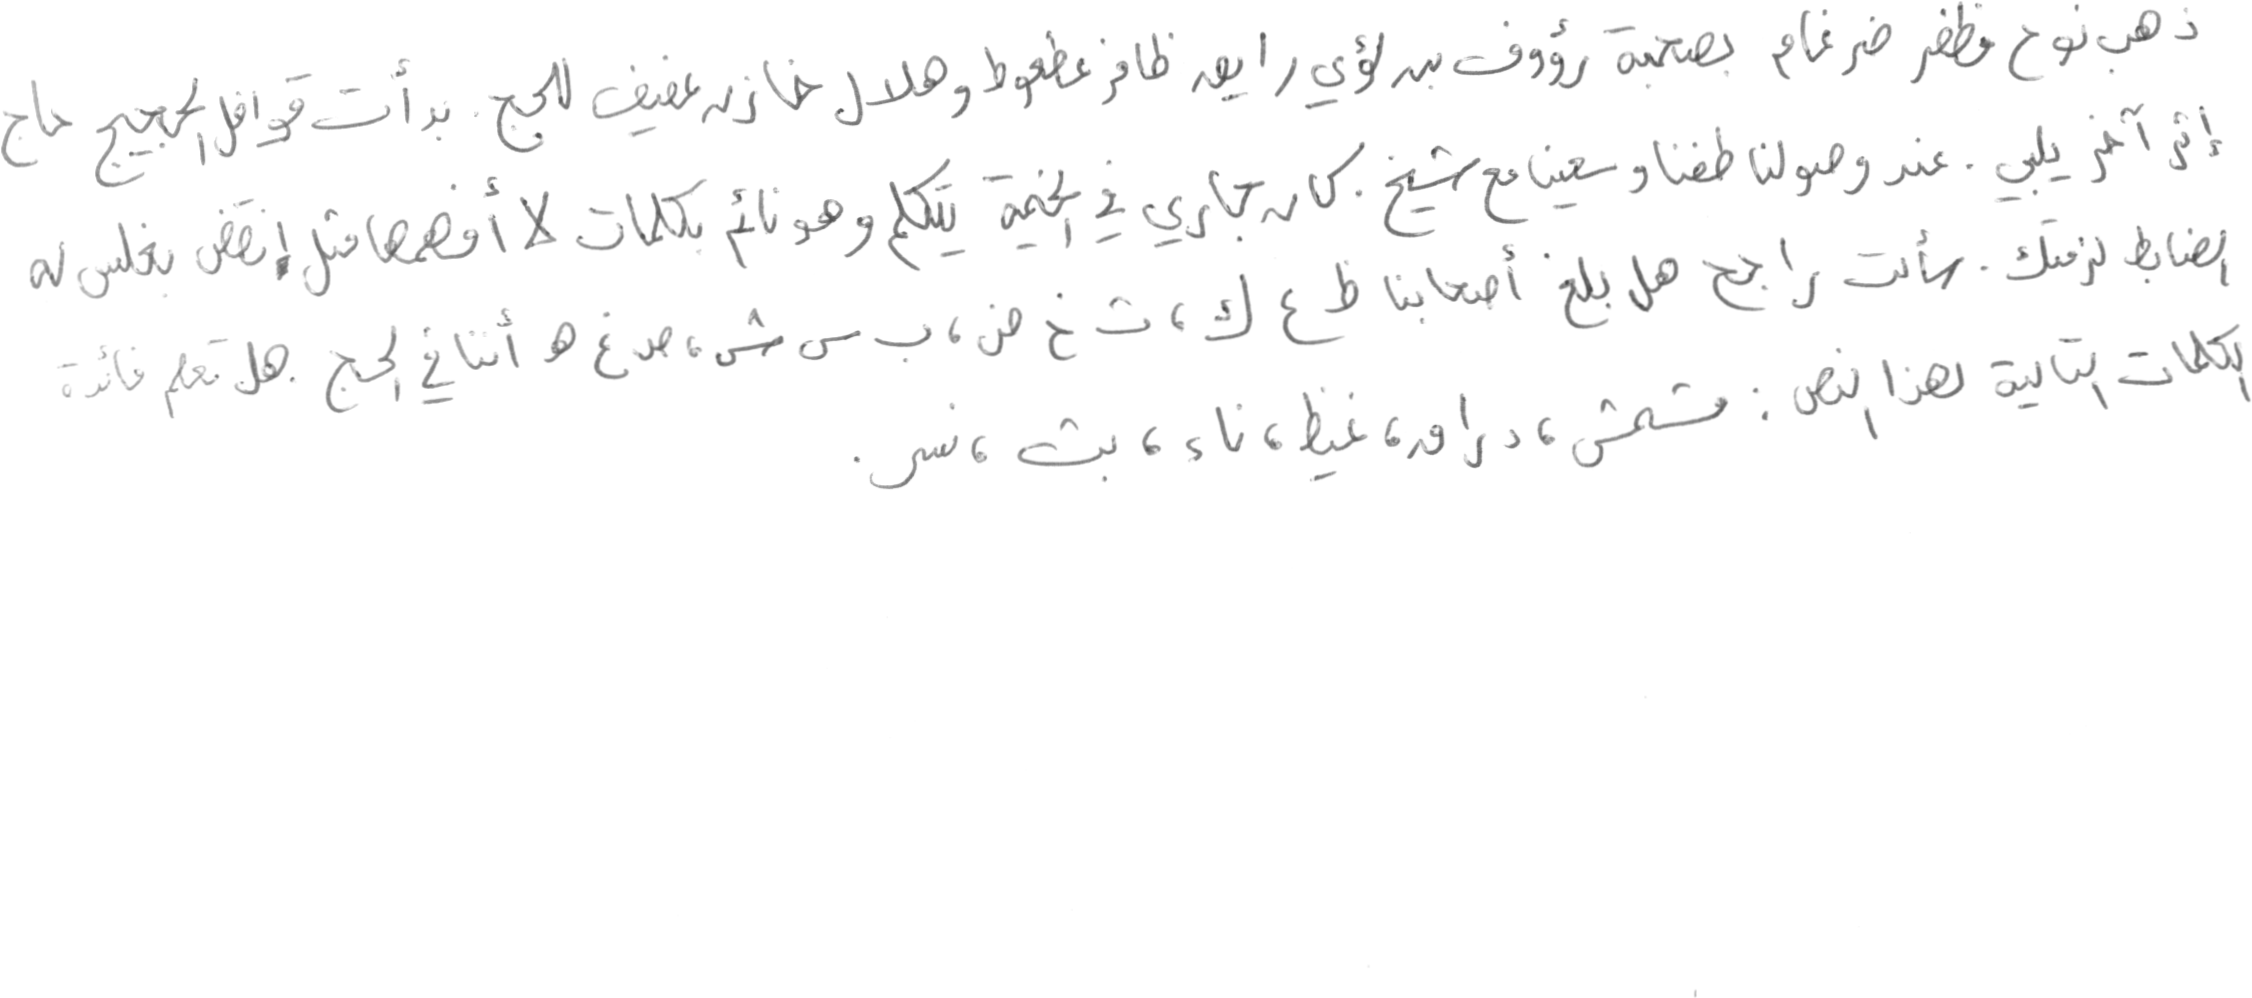 ذهب نوح مظفر ضرغام بصحبة رؤوف بن لؤي راجن ظافر عطعوط وهلال خازن عفيف للحج. بدأت قوافل الحجيج حاج
إثر آخر يلبي. عند وصولنا طفنا وسعينا مع شيخ. كان بجاري في الخيمة يتكلم وهو نائم بكلمات لا أفهمها مثل إنقض بغلس له
الضابط لزمتك. سألت راجح هل بلغ أصحابنا ظ ع ك، ث خ ض، ب س ش، ص غ ه أننا في الحج. هل تعلم فائدة
الكلمات التالية لهذا النص: مشمش، دراق، غيظ، ناء، بث، نسر.